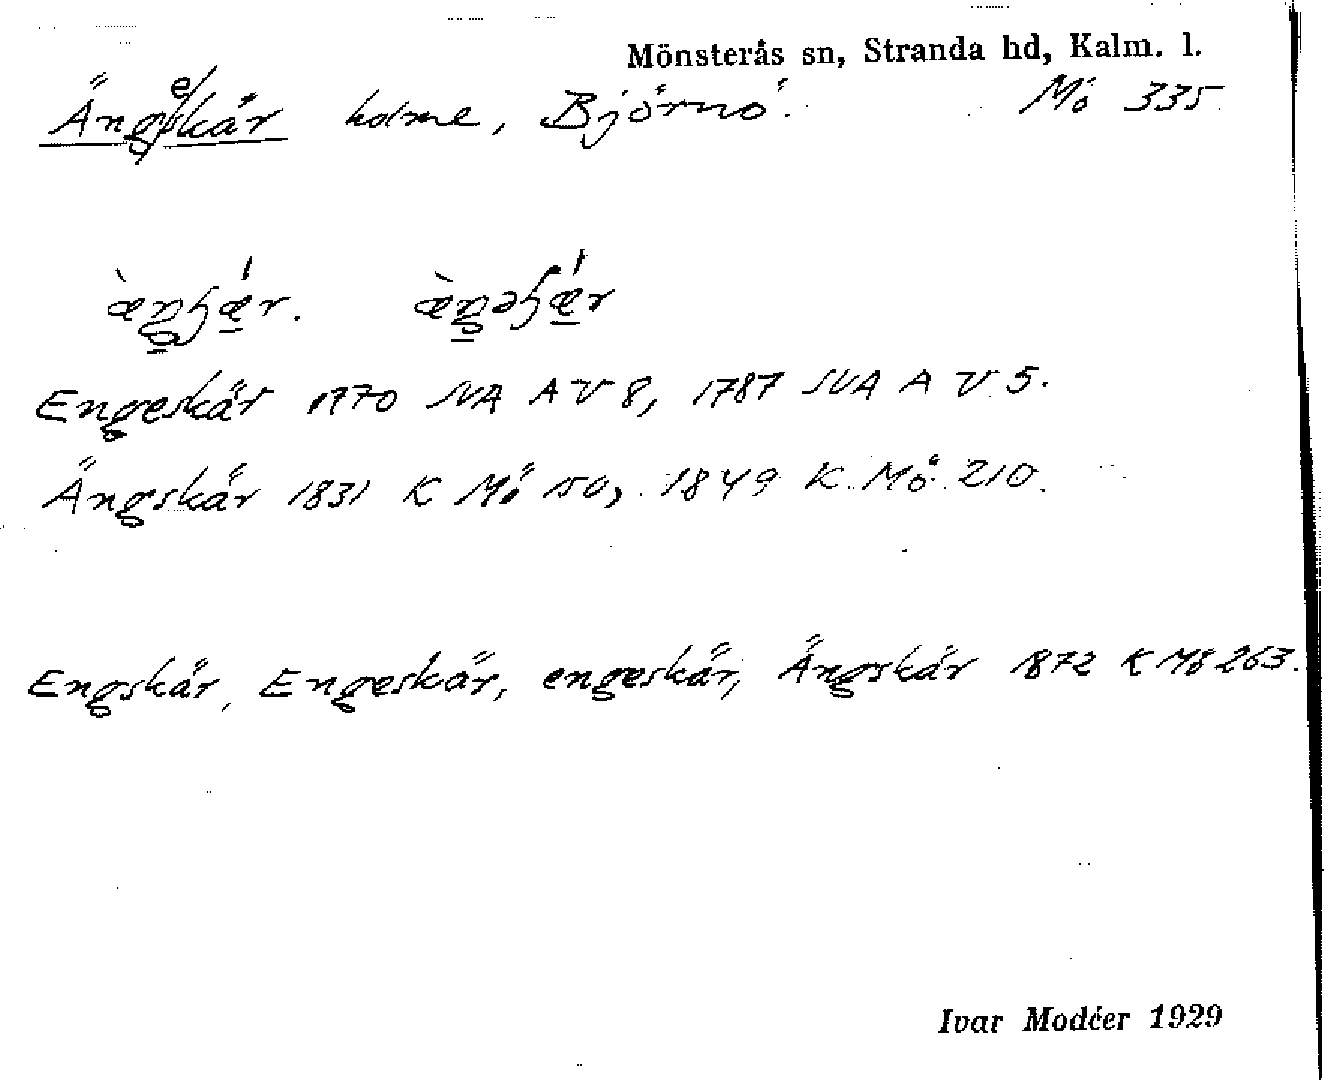 Mönsterås sn, Stranda hd, Kalm. l.
Ängeskär holme, Björnö. Mö 335
Engeskär 1770 SVA A V 8, 1787 SVA A V 5.
Ängskär 1831 K Mö 150, 1849 K Mö 210.
Engskär, Engeskär, engeskär, Ängskär 1872 K Mö 263.
Ivar Modéer 1929